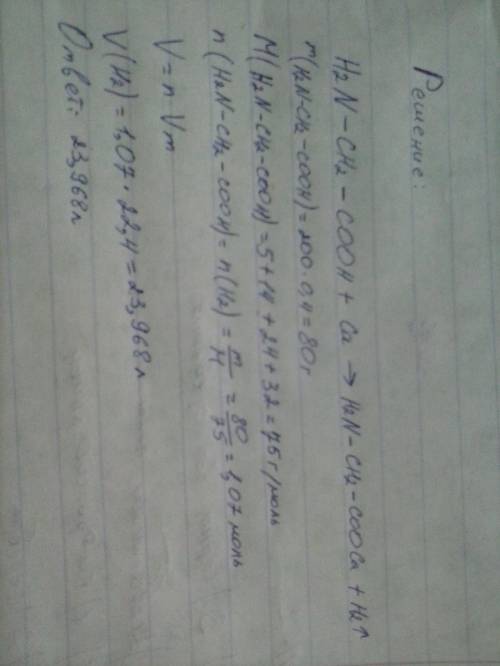 Решение:
H₂N – CH₂ – COOH + Ca → H₂N – CH₂ – COOCa + H₂↑
m(H₂N–CH₂–COOH) = 200 · 0,4 = 80г
M(H₂N–CH₂–COOH) = 5 + 14 + 24 + 32 = 75 г/моль
n(H₂N–CH₂–COOH) = n(H₂) = m/M = 80/75 = 1,07 моль
V = n Vm
V(H₂) = 1,07 · 22,4 = 23,968л
Ответ: 23,968л